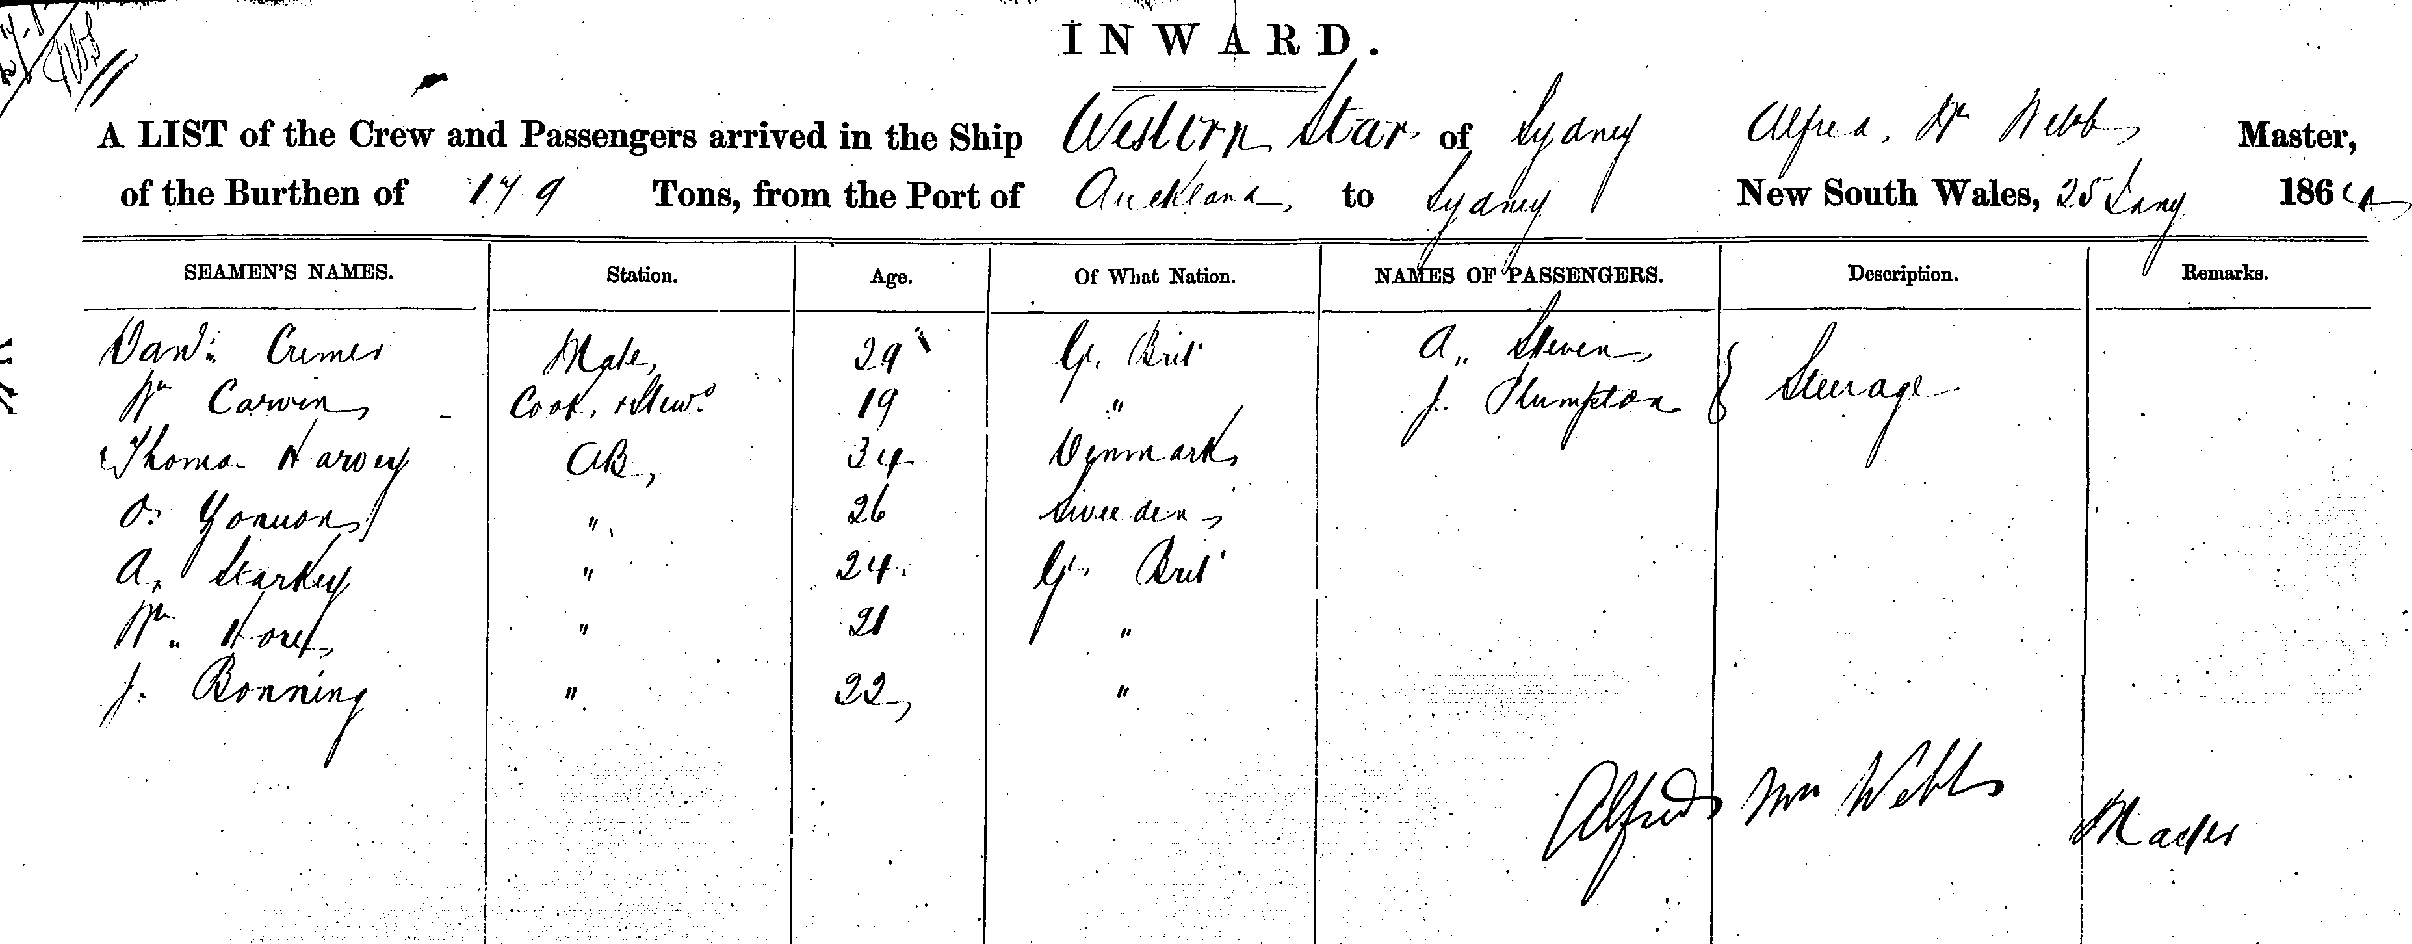 INWARD.
A LIST of the Crew and Passengers arrived in the Ship Western Star of Sydney Alfred Wm Webb Master,
of the Burthen of 179 Tons, from the Port of Auckland, to Sydney New South Wales, 25 Jany 186
SEAMEN'S NAMES. Station. Age. Of What Nation. NAMES OF PASSENGERS. Description. Remarks.
Danl Mate, 29 Gt. Brit A,, Steven Steerage
Wm Carwin Cook, & Stewd 19 " J. Plumpton
Thomas Harvey AB, 34 Denmark
O. " 26 Sweeden
A, Starkey " 24 Gt. Brit
Wm " 21 "
J. Bonning " 22, "
Alfred Wm Webb Master